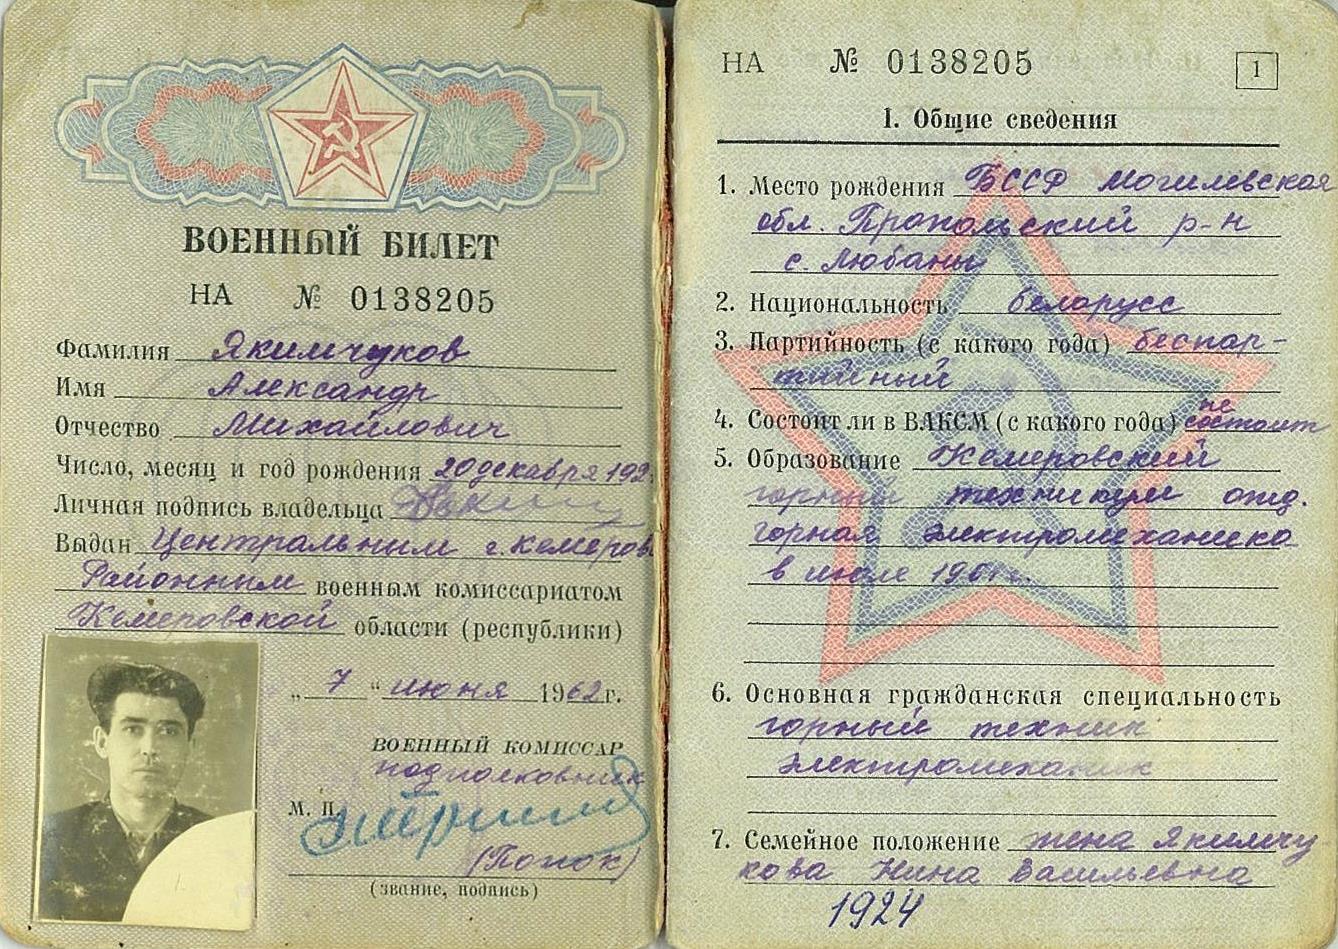 ВОЕННЫЙ БИЛЕТ
НА № 0138205
Фамилия Якимчуков
Имя Александр
Отчество Михайлович
Число, месяц и год рождения 20 декабря 192
Личная подпись владельца
Выдан Центральным г. Кемеров
Районным военным комиссариатом
Кемеровской области (республики)
„ 7 “ июня 1962 г.
ВОЕННЫЙ КОМИССАР
подполковник
М. П.
(Попок)
(звание, подпись)
НА № 0138205 1
I. Общие сведения
1. Место рождения БССР Могилевская
обл. Пропольский р-н
с. Любаны
2. Национальность белорусс
3. Партийность (с какого года) беспар-
тийный
4. Состоит ли в ВЛКСМ (с какого года) не состоит
5. Образование Кемеровский
горный техникум отд.
горная электромеханика
в июле 1961 г.
6. Основная гражданская специальность
горный техник
электромеханик
7. Семейное положение жена Якимчу
кова Нина Васильевна
1924